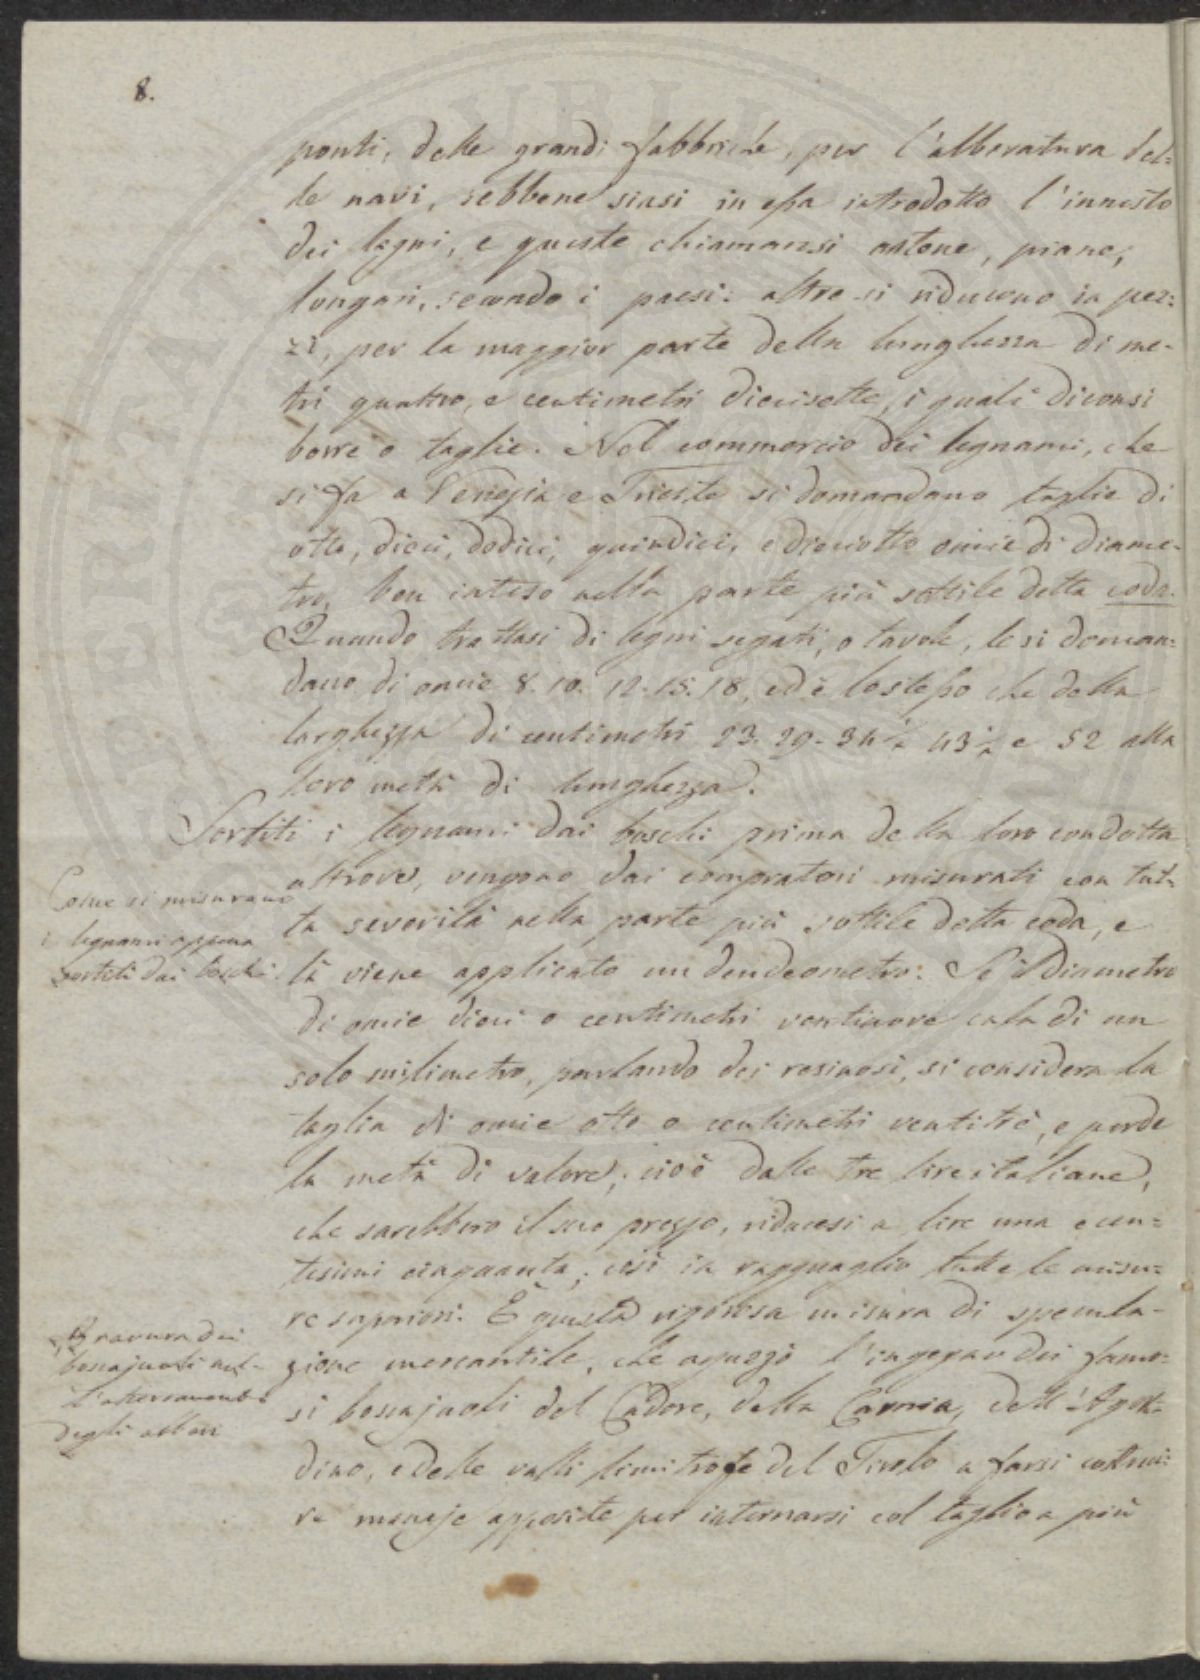 8.
ponti, delle grandi fabbriche, per l'alberatura del=
le navi, sebbene siasi in essa introdotto l'innesto
dei legni, e queste chiamansi antene, piane,
longari, secondo i paesi: altre si riducono in pez=
zi, per la maggior parte della lunghezza di me-
tri quattro, e centimetri diecisette, i quali diconsi
borre o taglie. Nel commercio dei legnami, che
si fa a Venezia e Trieste si domandano taglie di
otto, dieci, dodici, quindici, e dieciotto oncie di diame-
tro, ben inteso nella parte più sottile detta coda.
Quando trattasi di legni segati, o tavole, le si doman=
dano di oncie 8. 10. 12. 15. 18, ed è lo stesso che della
larghezza di centimetri 23. 29. 34½ 43½ e 52 alla
loro metà di lunghezza.
Sortiti i legnami dai boschi prima della loro condotta
altrove, vengono dai compratori misurati con tut=
ta severità nella parte più sottile detta coda, e
là viene applicato un dendrometro: Se il diametro
di oncie dieci o centimetri ventinove cala di un
solo milimetro, parlando dei resinosi, si considera la
taglia di oncie otto o centimetri ventitrè, e perde
la metà di valore; cioè dalle tre lire italiane,
che sarebbero il suo prezzo, riducesi a lire una e cen=
tesimi cinquanta; così in ragguaglio tutte le misu=
re superiori. È questa rigorosa misura di specula-
zione mercantile, che aguzzò l'ingegno dei famo=
si boscajuoli del Cadore, della Carnia, dell'Agor=
dino, e delle valli limitrofe del Tirolo a farsi costrui=
re manaje apposite per internarsi col taglio a più
Come si misurano
i legnami appena
sortiti dai boschi.
Bravura dei
boscajuoli nel-
l'atterramento
degli alberi